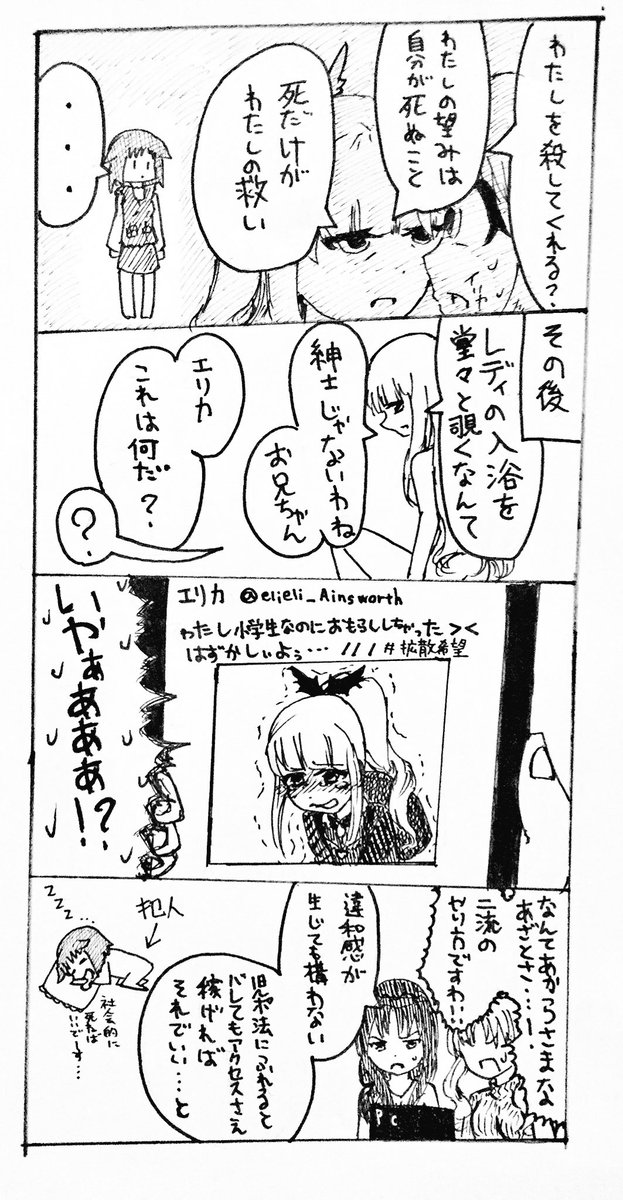 わたしを殺してくれる?
わたしの望みは
自分が死ぬこと
死だけが
わたしの救い
・・・
その後
レディの入浴を
堂々と覗くなんて
紳士じゃないわね
お兄ちゃん
エリカ
これは何だ?
?
エリカ @elieli_Ainsworth
わたし小学生なのにおもらししちゃった><
はずかしぃよぅ… /// #拡散希望
いやぁあぁあぁ!?
なんてあからさまな
あざとさ…!
二流の
やり方ですわ!!
違和感が
生じても構わない
児ポ法にふれると
バレてもアクセスさえ
稼げれば
それでいい…と
PC
zzz…
犯人
社会的に
死ねば
いいでーす…